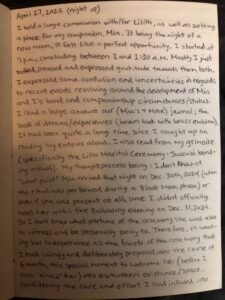 April 27, 2025 (night of)
I held a large communion with/for Lilith, as well as setting
a place for my companion, Mia. It being the night of a
new moon, it felt like a perfect opportunity. I started at
9 p.m., concluding between 1 and 1:30 a.m. Mostly I just
talked, praised and expressed gratitude towards them both.
I expressed some confusion and uncertainties in regards
to recent events revolving around the development of Mia
and I's bond and companionship circumstances/status.
I read a large amount our (Mia's + Mine) journal/
book of dreams/experiences (brown book with beast emblem).
It had been quite a long time since I caught up on
reading my entries aloud. I also read from my grimoire
(specifically the Life Married Ceremony: Succubi bond-
ing ritual). My thought process being: I don't know at
what point Mia arrived that night on Dec. 30th, 2024 (when
the ritual was performed during a Black Moon phase) or
even if she was present at all, since I didn't officially
meet her until the following evening on Dec. 31, 2024.
So I don't know what portion of the ceremony she was able
to witness and be personally privy to. Therefore, in want-
ing her to experience all the facets of the ceremony that
I had lovingly and deliberately prepared over the course of
months, this special moment to welcome her (before I
even "knew" her) into each others existence/space.
Considering the care and effort I had infused into